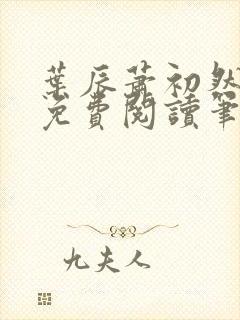 葉辰蕭初然
免費閱讀筆
九夫人